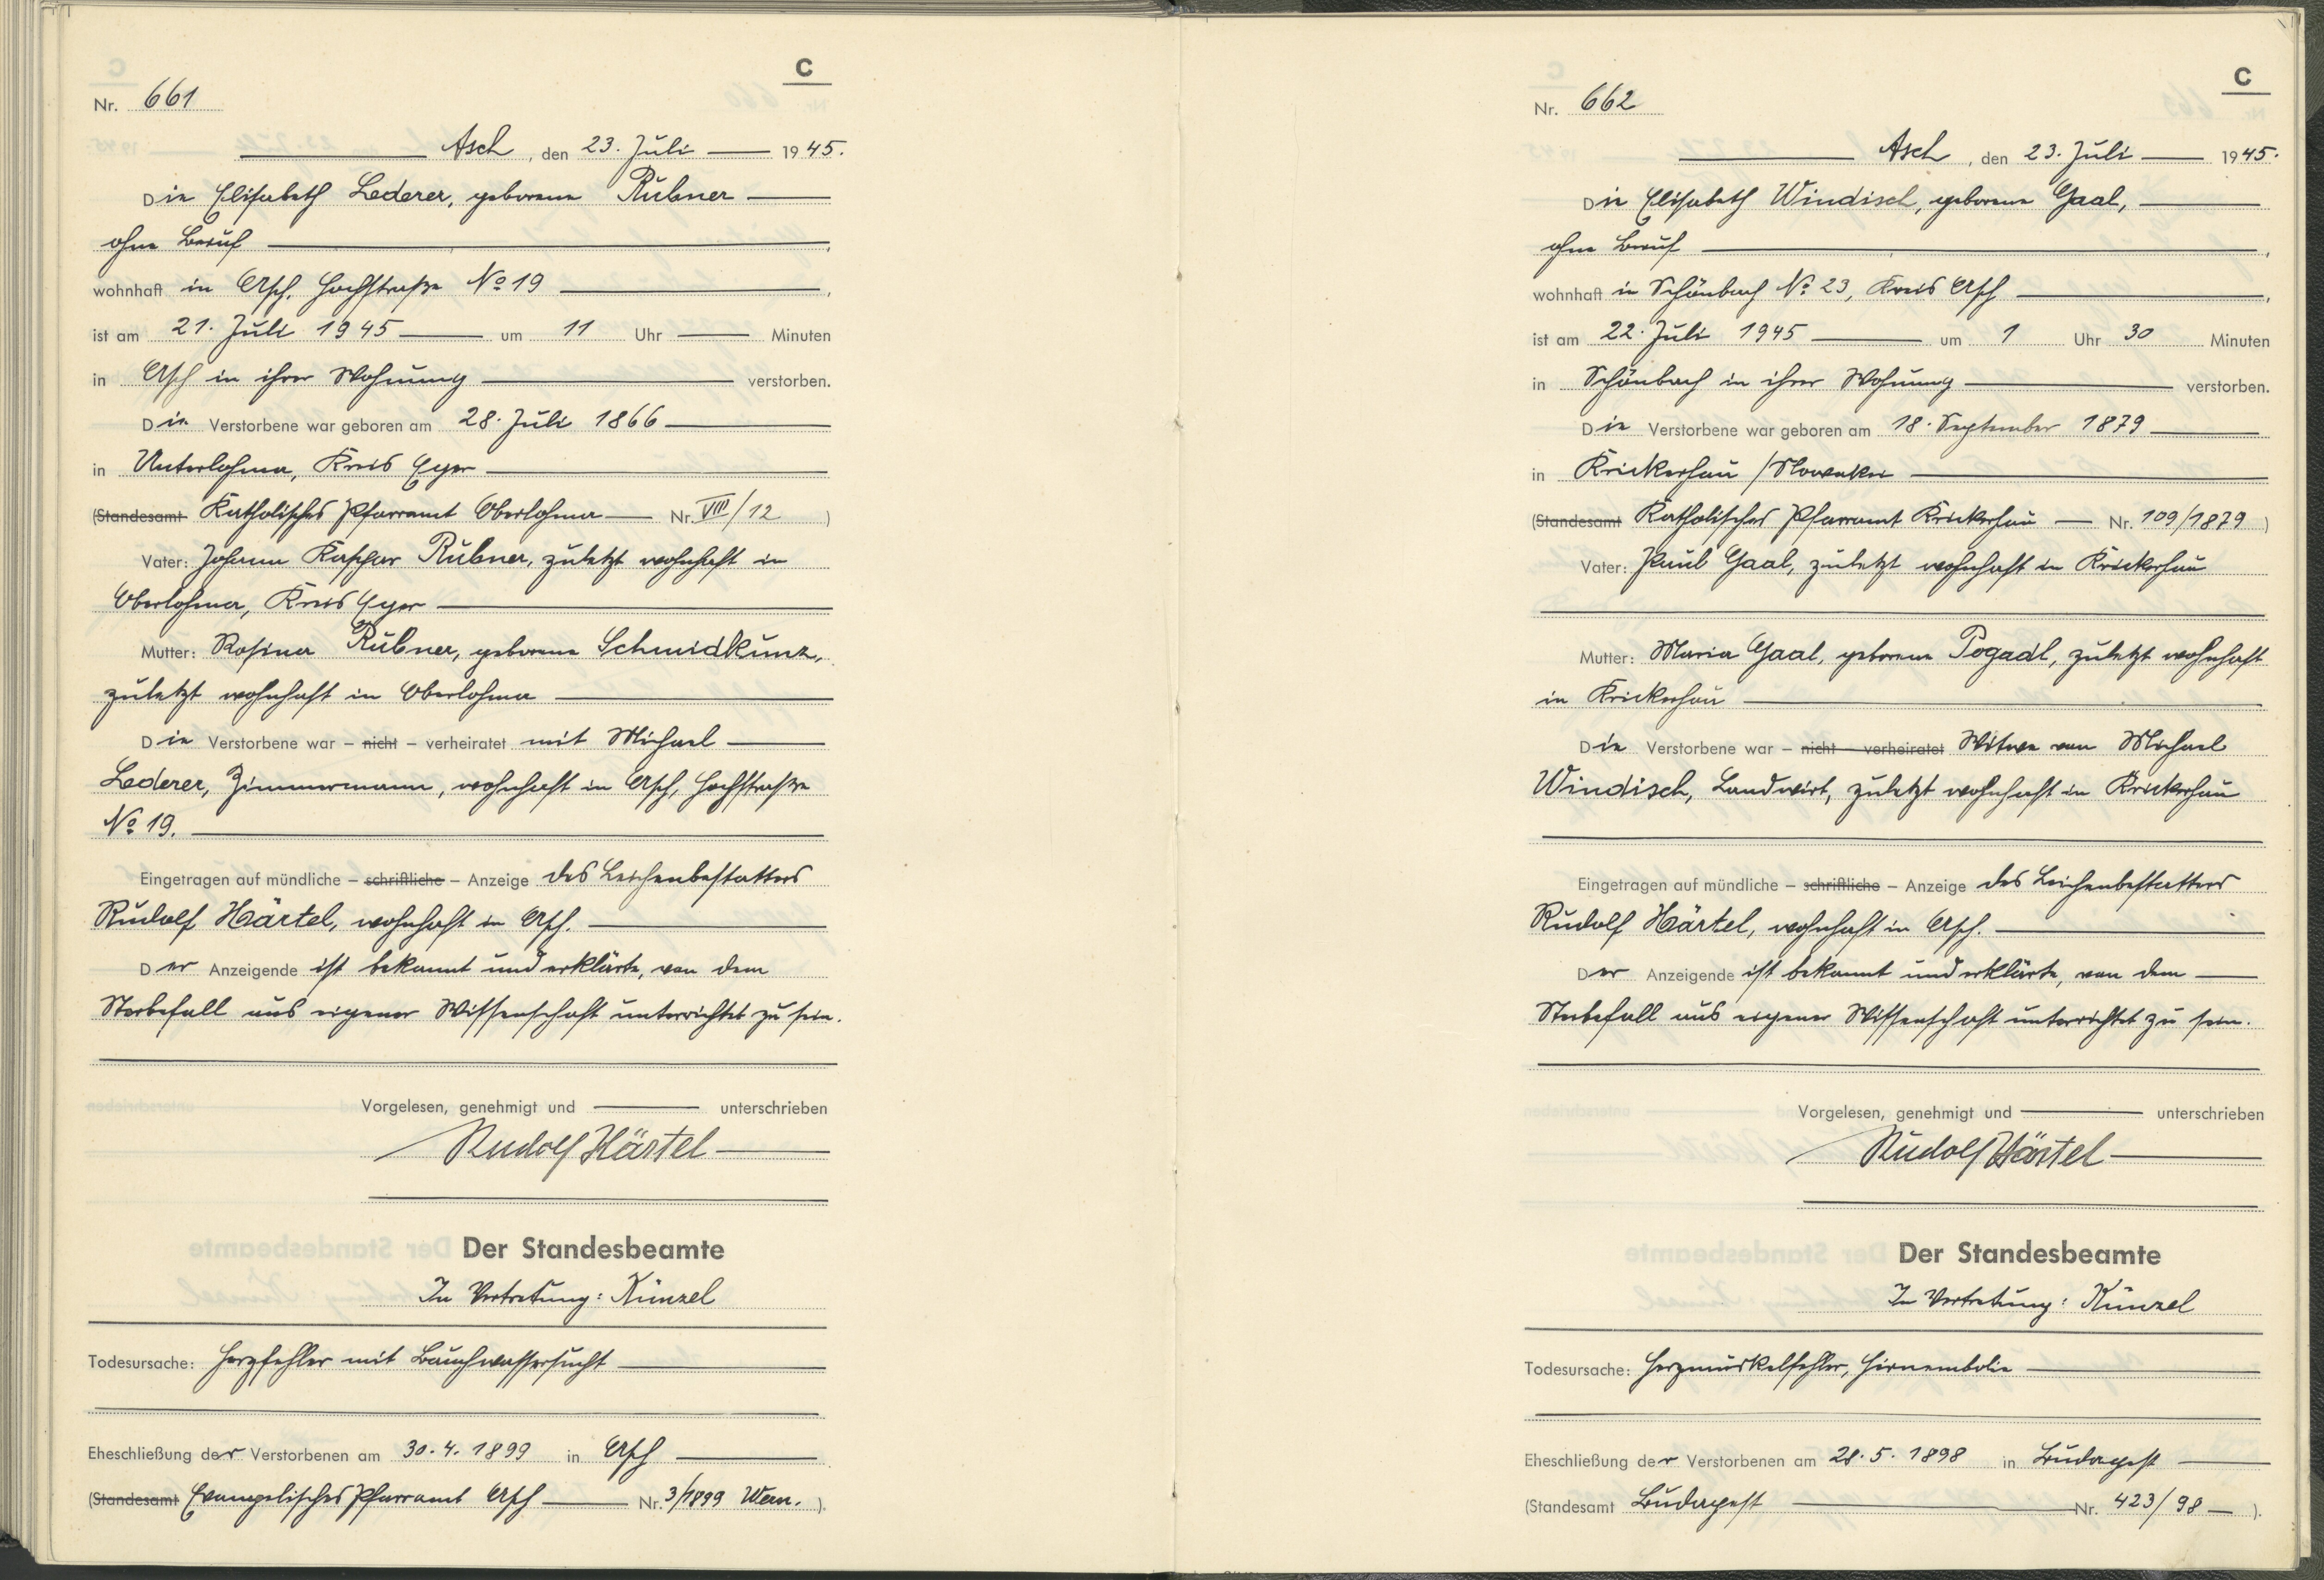 C
Nr. 661
Asch, den 23. Juli 1945.
Die Elisabeth Lederer, geborene Rubner
ohne Beruf,
wohnhaft in Asch, Hochstraße No 19,
ist am 21. Juli 1945 um 11 Uhr Minuten
in Asch in ihrer Wohnung verstorben.
Die Verstorbene war geboren am 28. Juli 1866
in Unterlohma, Kreis Eger
(Standesamt Katholisches Pfarramt Oberlohma Nr. VIII/12)
Vater: Johann Kaspar Rubner, zuletzt wohnhaft in
Oberlohma, Kreis Eger
Mutter: Rosina Rubner, geborene Schmidkunz,
zuletzt wohnhaft in Oberlohma
Die Verstorbene war – nicht – verheiratet mit Michael
Lederer, Zimmermann, wohnhaft in Asch, Hochstraße
No 19.
Eingetragen auf mündliche – schriftliche – Anzeige des Leichenbestatters
Rudolf Härtel, wohnhaft in Asch.
Der Anzeigende ist bekannt und erklärte, von dem
Sterbefall aus eigener Wissenschaft unterrichtet zu sein.
Vorgelesen, genehmigt und unterschrieben
Rudolf Härtel
Der Standesbeamte
In Vertretung: Künzel
Todesursache: Herzfehler mit Bauchwassersucht
Eheschließung der Verstorbenen am 30.4.1899 in Asch
(Standesamt Evangelisches Pfarramt Asch Nr. 3/1899 Wern.).
C
Nr. 662
Asch, den 23. Juli 1945.
Die Elisabeth Windisch, geborene Gaal,
ohne Beruf,
wohnhaft in Schönbach No. 23, Kreis Asch,
ist am 22. Juli 1945 um 1 Uhr 30 Minuten
in Schönbach in ihrer Wohnung verstorben.
Die Verstorbene war geboren am 18. September 1879
in Krickerhau /Slowakei
(Standesamt Katholisches Pfarramt Krickerhau Nr. 109/1879)
Vater: Paul Gaal, zuletzt wohnhaft in Krickerhau
Mutter: Maria Gaal, geborene Pogadl, zuletzt wohnhaft
in Krickerhau
Die Verstorbene war – nicht – verheiratet Witwe von Michael
Windisch, Landwirt, zuletzt wohnhaft in Krickerhau
Eingetragen auf mündliche – schriftliche – Anzeige des Leichenbestatters
Rudolf Härtel, wohnhaft in Asch.
Der Anzeigende ist bekannt und erklärte, von dem
Sterbefall aus eigener Wissenschaft unterrichtet zu sein.
Vorgelesen, genehmigt und unterschrieben
Rudolf Härtel
Der Standesbeamte
In Vertretung: Künzel
Todesursache: Herzmuskelfehler, Hirnembolie
Eheschließung der Verstorbenen am 28.5.1898 in Budapest
(Standesamt Budapest Nr. 423/98).